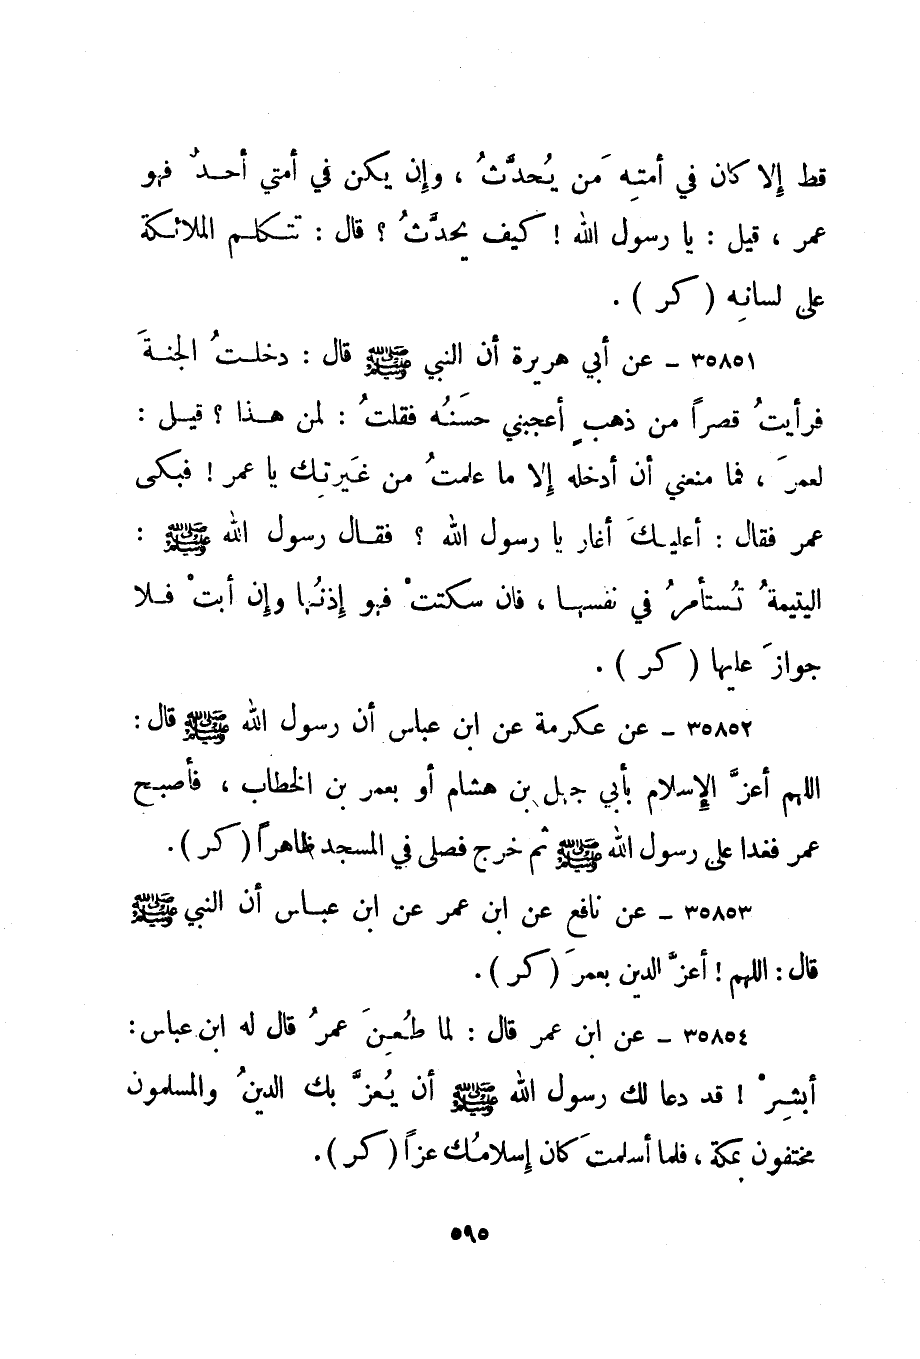 قط إلا كان في أمتِه مَن يُحدَّثُ ، وإن يكن في أمتي أحدٌ فهو
عمر ، قيل : يا رسول الله ! كيف يحدَّثُ ؟ قال : تتكلم الملائكة
على لسانِه ( كر ) .
٣٥٨٥١ ـ عن أبي هريرة أن النبي ﷺ قال : دخلتُ الجنةَ
فرأيتُ قصراً من ذهبٍ أعجبني حسَنُه فقلتُ : لمن هذا ؟ قيل :
لعمرَ ، فما منعني أن أدخله إلا ما علمتُ من غَيرتِك يا عمر ! فبكى
عمر فقال : أعليكَ أغار يا رسول الله ؟ فقال رسول الله ﷺ :
اليتيمةُ تُستأمرُ في نفسها ، فان سكتتْ فهو إذنُها وإن أبتْ فلا
جوازَ عليها ( كر ) .
٣٥٨٥٢ ـ عن عكرمة عن ابن عباس أن رسول الله ﷺ قال :
اللهم أعزَّ الإسلام بأبي جهل بن هشام أو بعمر بن الخطاب ، فأصبح
عمر فغدا على رسول الله ﷺ ثم خرج فصلى في المسجد ظاهراً ( كر ) .
٣٥٨٥٣ ـ عن نافع عن ابن عمر عن ابن عباس أن النبي ﷺ
قال : اللهم ! أعزَّ الدين بعمرَ ( كر ) .
٣٥٨٥٤ ـ عن ابن عمر قال : لما طُعِنَ عمرُ قال له ابن عباس :
أبشِرْ ! قد دعا لك رسول الله ﷺ أن يُعزَّ بك الدينُ والمسلمون
مختفون بمكة ، فلما أسلمتَ كان إسلامُك عزاً ( كر ) .
٥٩٥